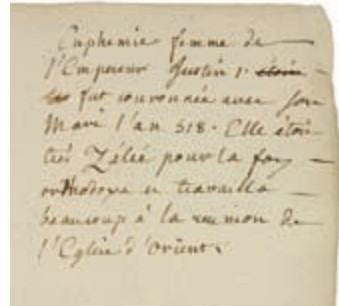 Euphemie femme de
l'Empereur Justin 1.
fut couronnée avec son
Mari l'an 518. Elle étoit
très Zélée pour la foy
orthodoxe et travailla
beaucoup à la reunion de
l'Eglise d'orient.